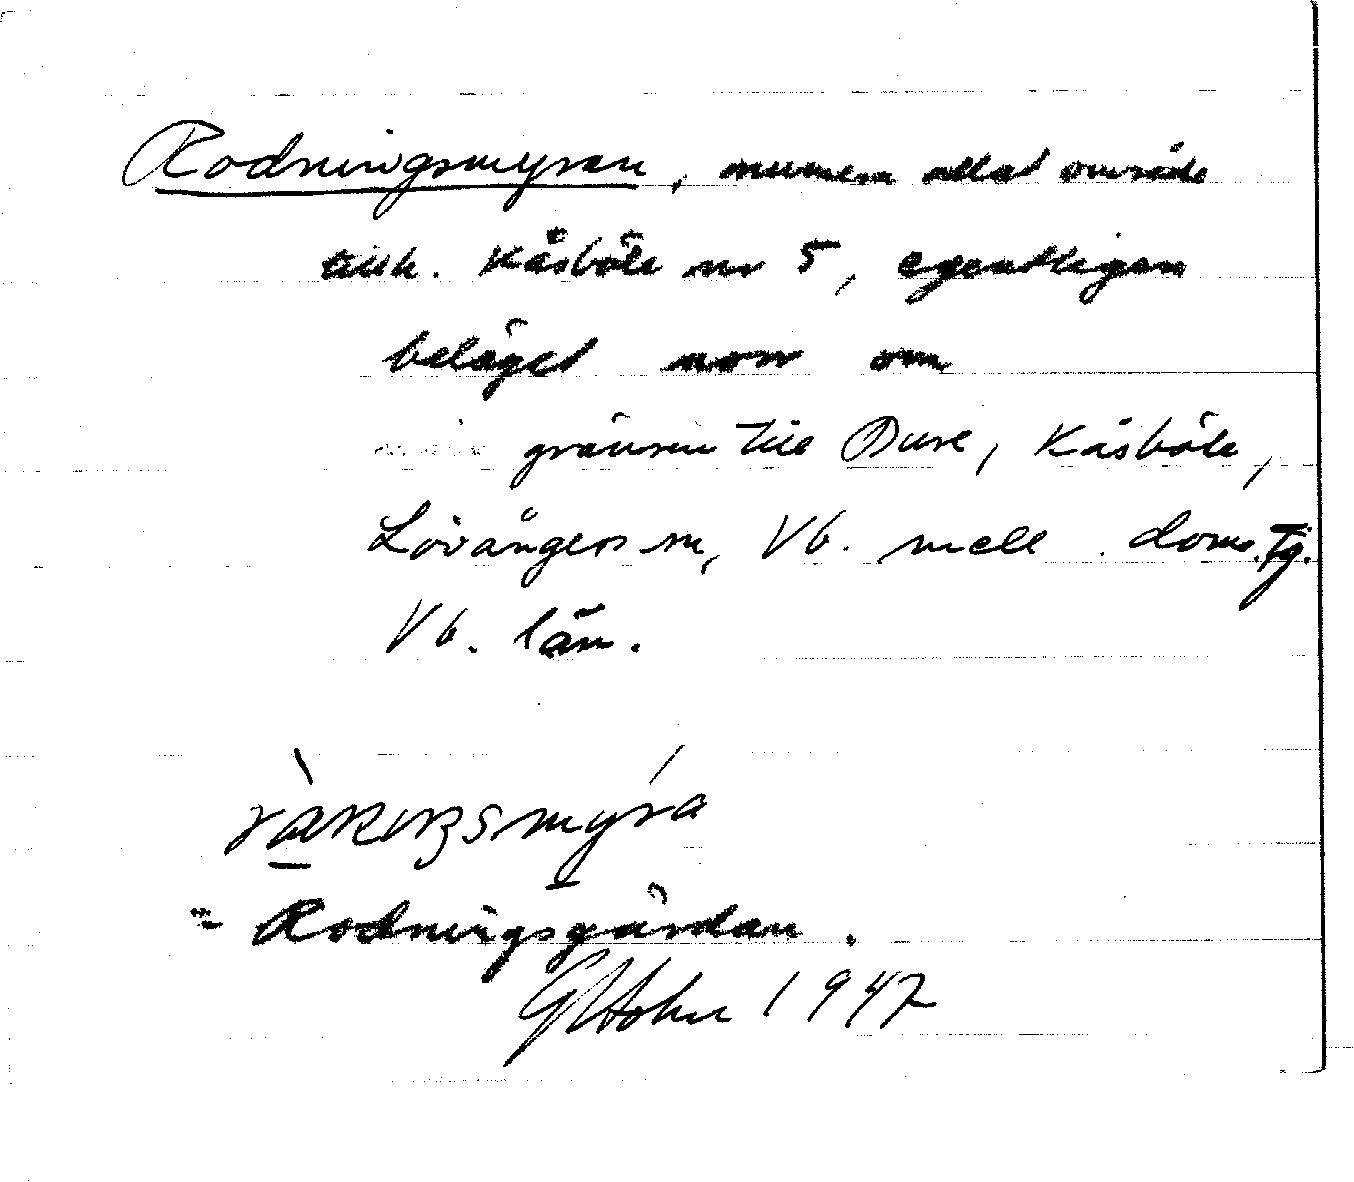 Rodningsmyran, numera odlat område
tillh. Kåsböle nr 5, egentligen
beläget norr om
gränsen till Bure, Kåsböle,
Lövångers sn, Vb. mell. doms. Tg.
Vb. län.
= Rodningsgärdan.
Holm 1947